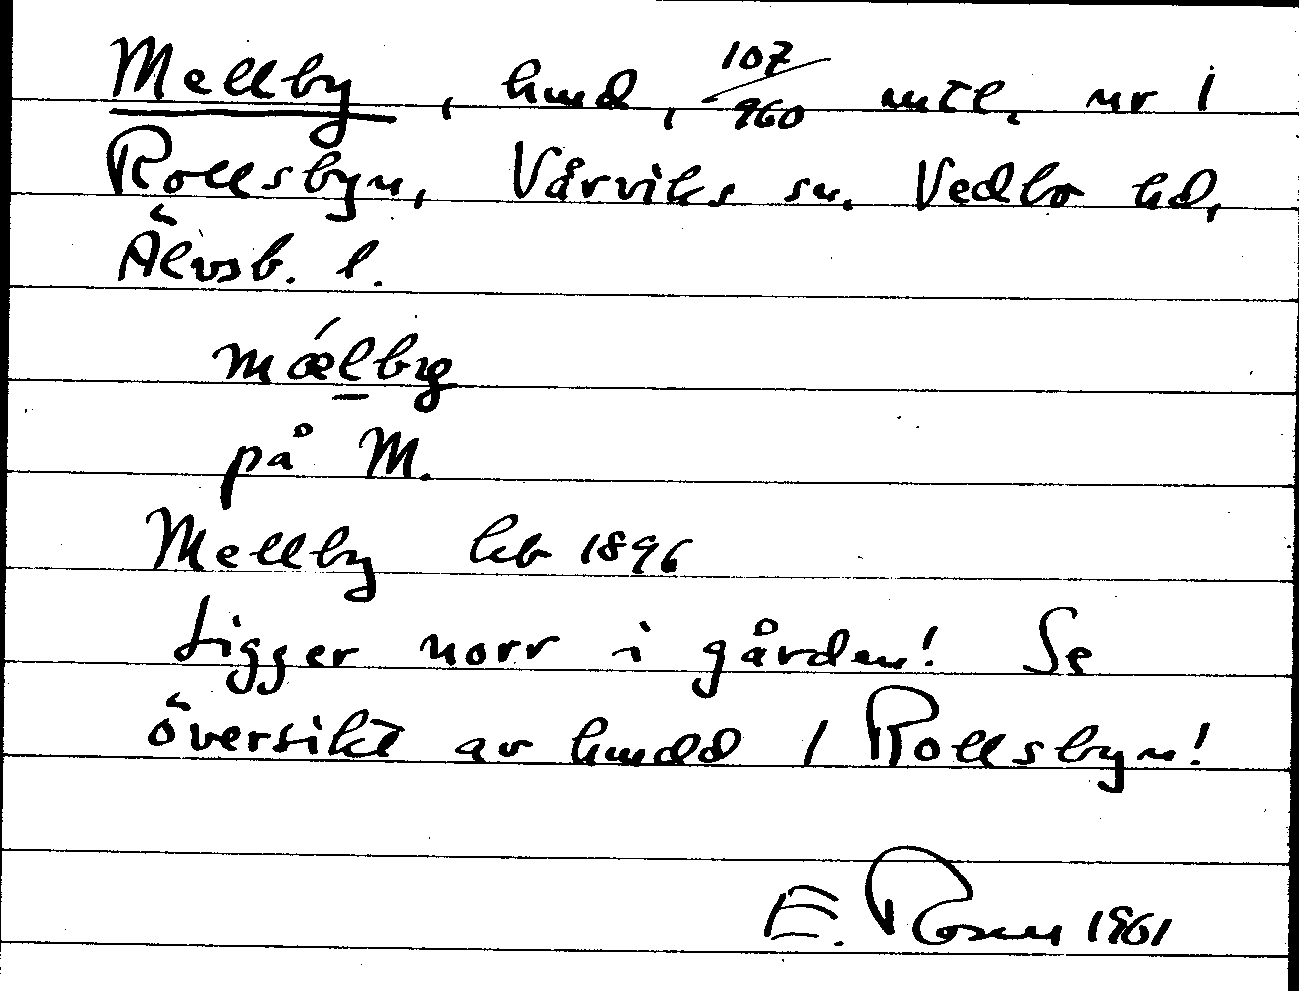 Mellby, hmd, 107/960 mtl. nr 1
Rollsbyn, Vårviks sn. Vedbo hd,
Älvsb. l.
mǽlby
på M.
Mellby hb 1896
Ligger norr i gården! Se
översikt av hmdd 1 Rollsbyn!
E. Rosen 1961